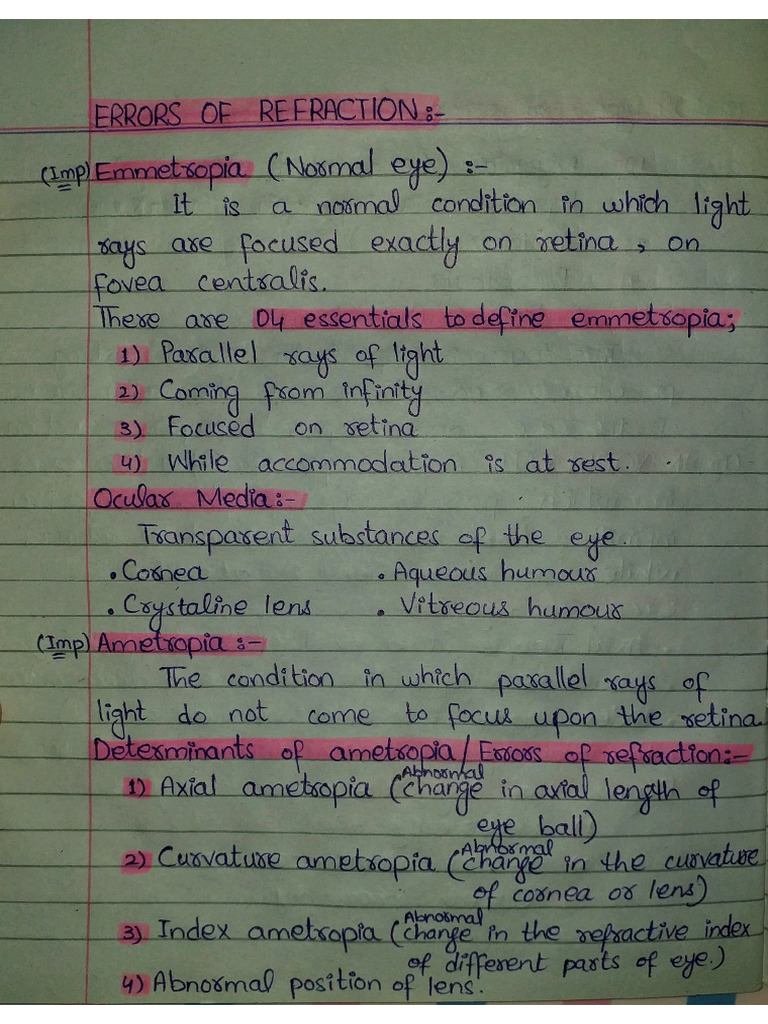 ERRORS OF REFRACTION:-
(Imp) Emmetropia (Normal eye) :-
It is a normal condition in which light
rays are focused exactly on retina, on
fovea centralis.
There are 04 essentials to define emmetropia;
1) Parallel rays of light
2) Coming from infinity
3) Focused on retina
4) While accommodation is at rest.
Ocular Media:-
Transparent substances of the eye.
• Cornea • Aqueous humour
• Crystaline lens • Vitreous humour
(Imp) Ametropia :-
The condition in which parallel rays of
light do not come to focus upon the retina
Determinants of ametropia/Errors of refraction:-
1) Axial ametropia (Abnormal change in axial length of
eye ball)
2) Curvature ametropia (Abnormal change in the curvature
of cornea or lens)
3) Index ametropia (Abnormal change in the refractive index
of different parts of eye.)
4) Abnormal position of lens.